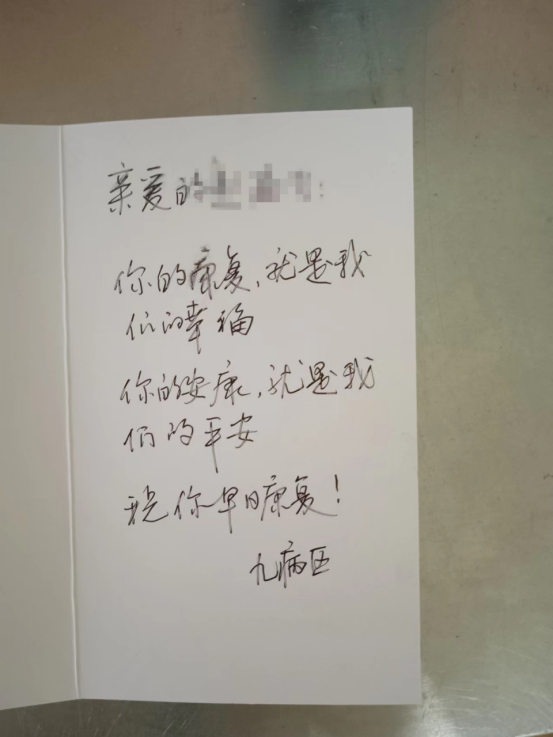 亲爱的
你的康复，就是我
们的幸福
你的安康，就是我
们的平安
祝你早日康复！
九病区